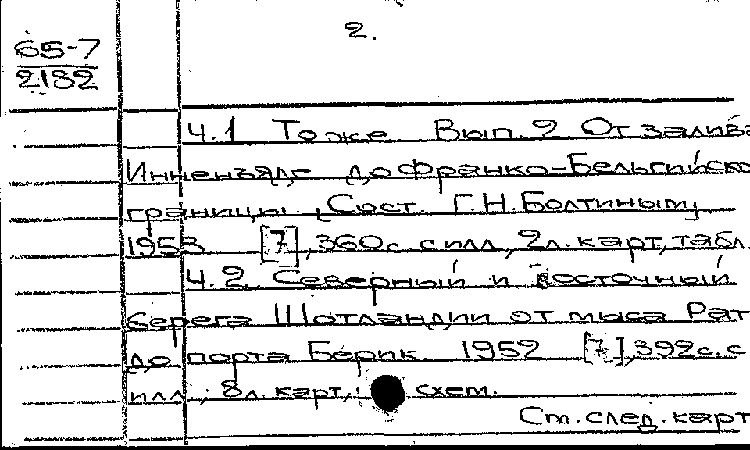 2.
65-7
2182
Ч.1 То же Вып. 2 От залива
Инненъяде до Франко-Бельгийско
границы [Сост. Г.Н. Болтиным]
1953 [7], 360 с. с илл, 2 л. карт, табл.
Ч. 2 Северный и Восточный
берега Шотландии от мыса Рат
до порта Берик 1952 [7], 392 с. с
илл; 8 л. карт, схем.
См. след. карт